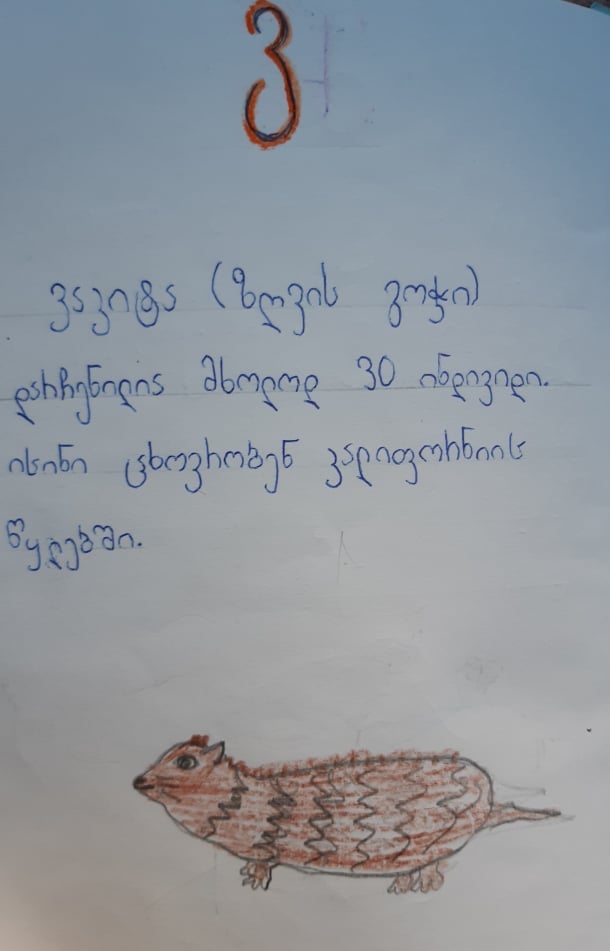 ვ
ვაკიტა (ზღვის გოჭი)
დარჩენილია მხოლოდ 30 ინდივიდი.
ისინი ცხოვრობენ კალიფორნიის
წყლებში.